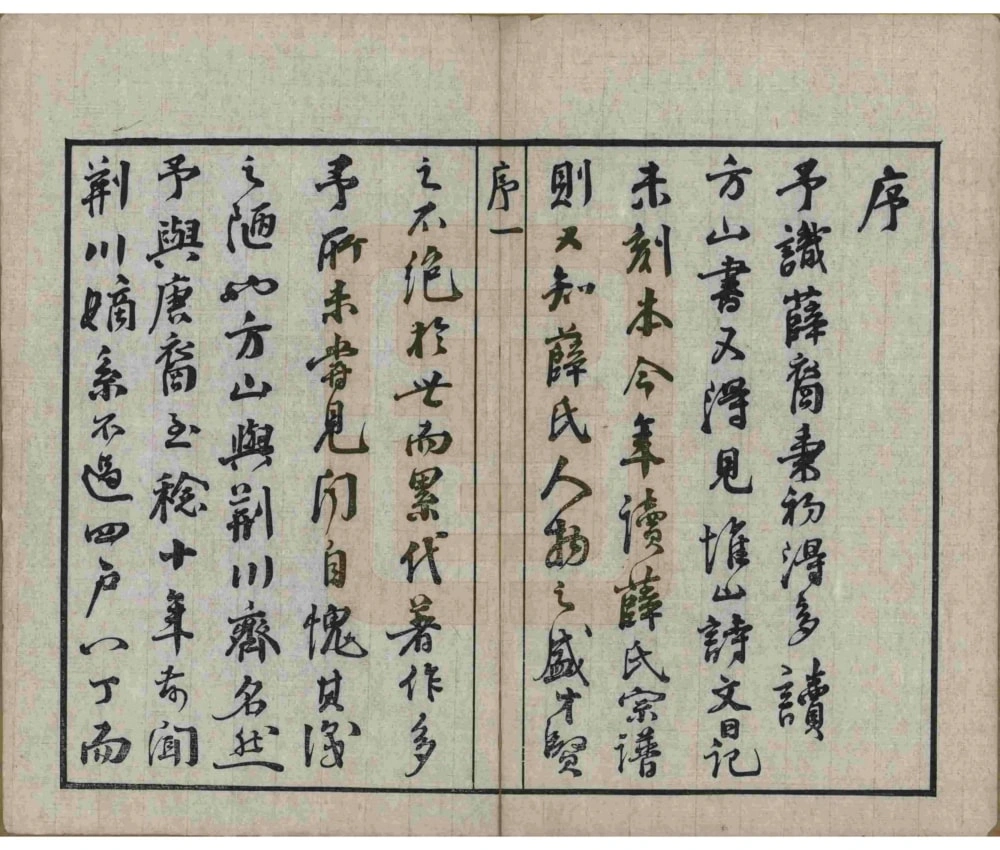 序
予識薛裔秉初得多讀
方山書又得見堆山詩文日記
未刻本今年讀薛氏宗譜
則又知薛氏人物之盛才賢
序一
之不絕於世而累代著作多
予所未嘗見聞自愧其淺
之陋也方山與荆川齊名然
予與唐裔至稔十年前聞
荆川嫡系不過四户八丁而